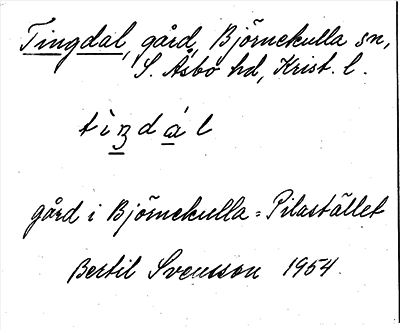 Tingdal, gård, Björnekulla sn,
S. Åsbo hd, Krist. l.
tìŋdál
gård i Björnekulla = Pilastället
Bertil Svensson 1954.